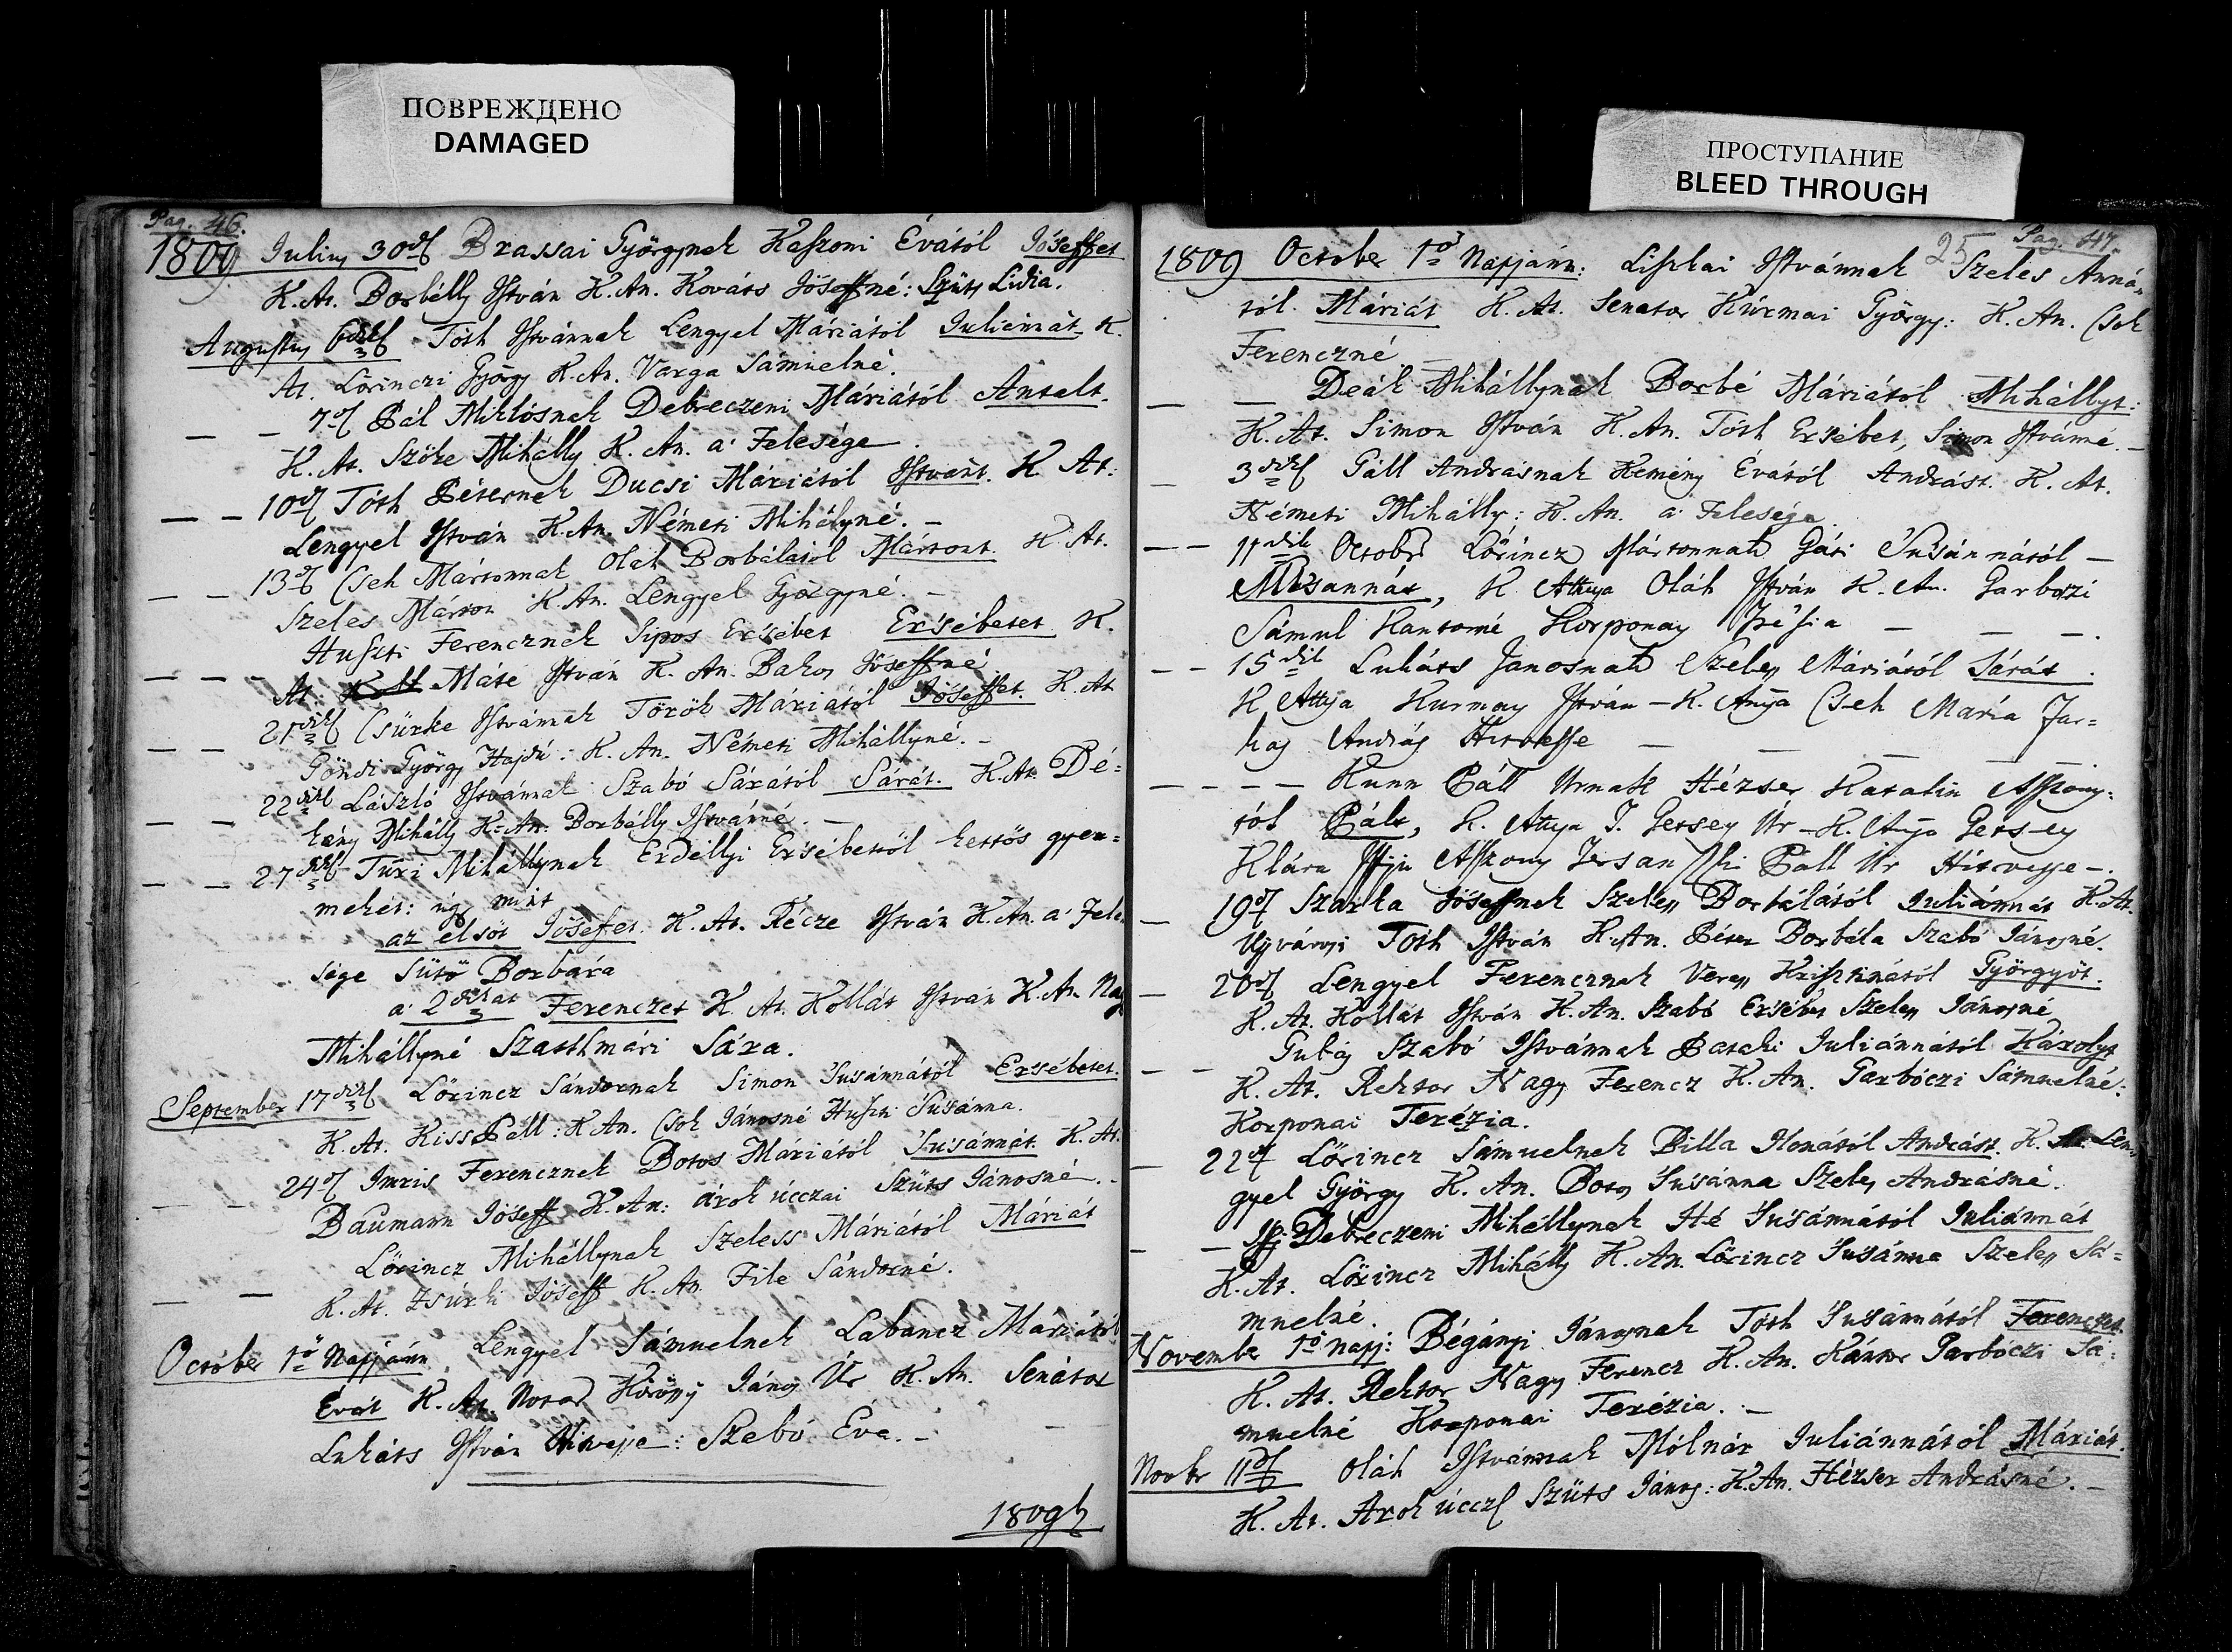 ПОВРЕЖДЕНО
DAMAGED
Pag. 46.
1809. Julius 30dik Brassai Györgynek Kaszoni Évától Jóseffet
K. At. Borbélly István K. An. Kováts Jóseffné: Szűts Lidia.
Augustus 6dik Tóth Istvánnak Lengyel Máriától Juliánnát K.
At. Lőrinczi György K. An. Varga Sámuelné.
— — 7d Pál Miklósnak Debreczeni Máriától Antalt.
K. At. Szőke Mihálly K. An. a' Felesége.
— — 10d Tóth Péternek Ducsi Máriától Istvánt. K. At:
Lengyel István K. An. Németi Mihályné. —
— — 13d Cseh Mártonnak Oláh Borbálától Mártont. K. At.
Szeles Márton K. An. Lengyel Györgyné. —
— — — Huszti Ferencznek Sipos Ersébet Ersébetet K.
At: Máté István K. An. Bakos Jóseffné
— — 21dik Csürke Istvánnak Török Máriától Jóseffet. K. At
Göndi György Hajdú: K. An. Németi Mihállyné. —
— — 22dik László Istvánnak Szabó Sárától Sárát. K. At. Dé-
kány Mihálly K. An. Borbélly Istvánné. —
— — 27dik Túri Mihállynak Erdéllyi Ersébettől kettős gyer=
meket: úgy mint
az elsőt Jósefet. K. At. Récze István K. An. a' Fele
sége Sütő Borbára
a' 2dikat Ferenczet K. At. Kollát István K. An. Nagy
Mihállyné Szatthmári Sára.
September 17dik Lőrincz Sándornak Simon Susánnától Ersébetet.
K. At. Kiss Páll: K. An. Csok Jánosné Huszti Susánna.
— — 24d Imris Ferencznek Botos Máriától Susánnát. K. At.
Baumann Jóseff K. An: árok úcczai Szűts Jánosné. —
— — Lőrincz Mihállynak Szeless Máriától Máriát
K. At. Zsúrki Jóseff K. An. File Sándorné.
Octóber 1ő Napjánn Lengyel Sámuelnek Labancz Máriától
Évát K. At. Notar János Úr K. An. Senátor
Lukáts István Hitvesse: Szabó Éva. —
1809
ПРОСТУПАНИЕ
BLEED THROUGH
25 Pag. 47.
1809 October 1ő Napjánn: Liszkai Istvánnak Szeles Anná-
tól. Máriát K. At. Senator Kúrmai György: K. An. Csok
Ferenczné —
— — Deák Mihállynak Borbé Máriától Mihállyt:
K. At. Simon István K. An. Tóth Ersébet, Simon Istvánné. —
— 3dik Gáll Andrásnak Kemény Évától Andrást. K. At.
Németi Mihálly: K. An. a' Felesége.
— — 11dik Octobr Lőrincz Mártonnak Pári Susánnától —
Susannát, K. Attya Oláh István K. An. Garbotzi
Sámul Kantorné Korponay Trésia — — —.
— — 15dik Lukáts Janosnak Szeles Máriától Sárát.
K Attya Kurmay István — K. Annya Cseh Maria Far=
kas András Hitvesse — — — —
— — — — Kunn Páll Urnak Hézser Katalin Asszony:
tól Pált, K. Attya I. Gersey Úr — K. Annya Gersey
Klára Ifjú Asszony Páll Úr Hitvesse —.
— 19d Szarka Jóseffnek Szeless Borbálától Juliánnát K. At.
Ujvárosi Tóth István K. An. Péter Borbála Szabó Jánosné.
— 20d Lengyel Ferencznek Veress Krisztinától Györgyöt.
K. At. Kollát István K. An. Szabó Ersébet Szeless Jánosné
— — Gulyás Szabó Istvánnak Pataki Juliánnától Károlyt
K. At. Rektor Nagy Ferencz K. An. Garbóczi Sámuelné:
Korponai Terézia.
— 22d Lőrincz Sámuelnek Billa Ilonától Andrást. K. At. Len-
gyel György K. An. Botos Susánna Szeles Andrásné.
— — Ifj: Debreczeni Mihállynak Hé Susánnától Juliánnát
K. At. Lőrincz Mihálly K. An. Lőrincz Susánna Szeless Sá=
muelné.
November 1ő Napj: Bégányi Jánosnak Tóth Susánnától Ferenczet.
K. At. Rektor Nagy Ferencz K. An. Kántor Garbóczi Sá-
muelné Korponai Terézia. —
Novbr 11d Oláh Istvánnak Mólnár Juliánnától Máriát.
K. At. Árok úcczi Szűts János: K. An. Hézser Andrásné. —